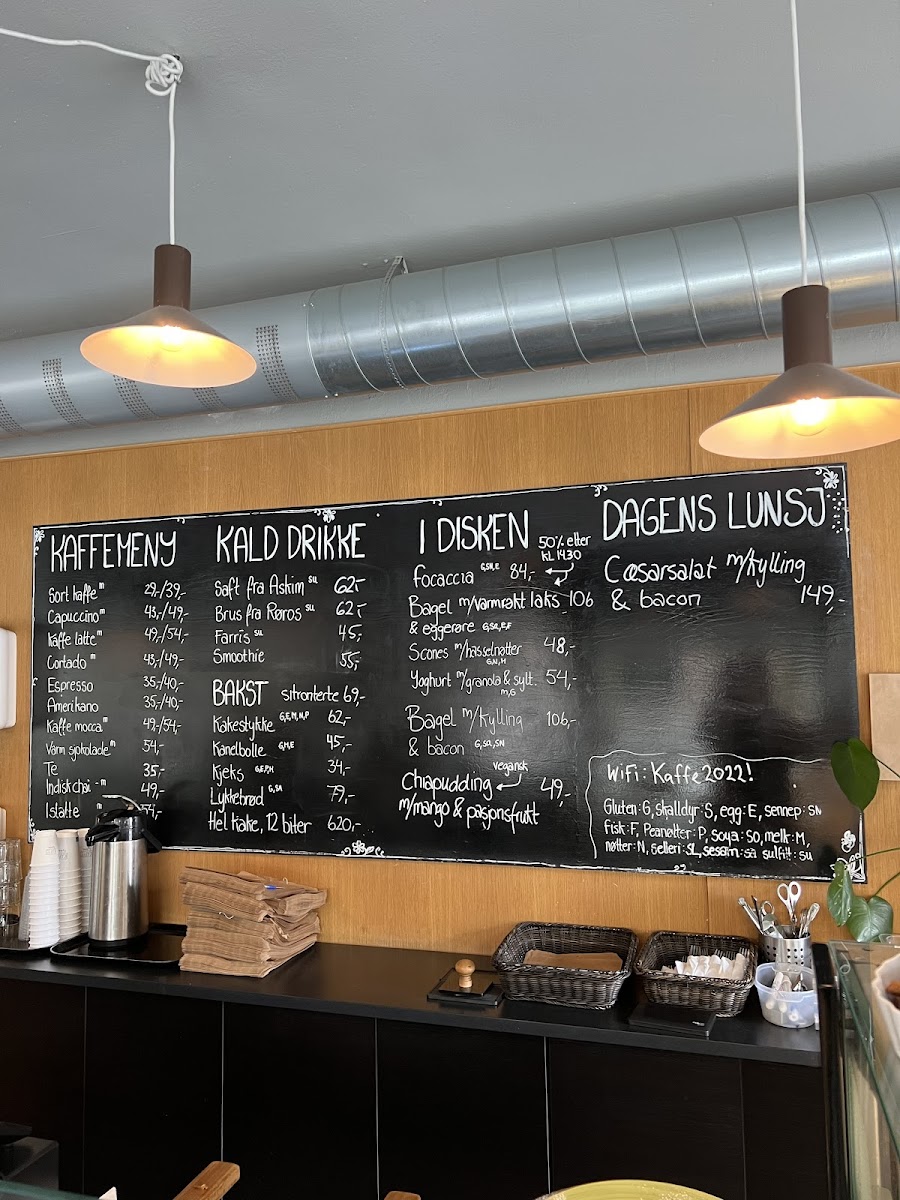 KAFFEMENY
Sort kaffe m 29,-/39,-
Capuccino m 43,-/49,-
Kaffe latte m 49,-/54,-
Cortado m 43,-/49,-
Espresso 35,-/40,-
Amerikano 35,-/40,-
Kaffe mocca m 49,-/54,-
Varm sjokolade m 54,-
Te 35,-
Indisk chai - m 49,-
Istatte m
KALD DRIKKE
Saft fra Askim su 62,-
Brus fra Røros su 62,-
Farris su 45,-
Smoothie 55,-
BAKST sitronterte 69,-
Kakestykke G,E,M,N,P 62,-
Kanelbolle G,M,E 45,-
Kjeks 34,-
Lykkebrød G,SA 79,-
Hel kake, 12 biter 620,-
I DISKEN
50% etter
KL 14.30
focaccia 84,-
Bagel m/varmrøkt laks 106
& eggerøre G,SA,E,F
Scones m/hasselnøtter 48,-
G,N,H
Yoghurt m/granola & sylt. 54,-
M,G
Bagel m/kylling 106,-
& bacon G,SA,SN
vegansk
Chiapudding 49,-
m/mango & pasjonsfrukt
DAGENS LUNSJ
Cæsarsalat m/kylling
& bacon 149,-
WiFi: Kaffe2022!
Gluten: G, skalldyr: S, egg: E, sennep: SN
fisk: F, Peanøtter: P, soya: SO, melk: M,
nøtter: N, selleri: SL, sesam: SA sulfitt: SU